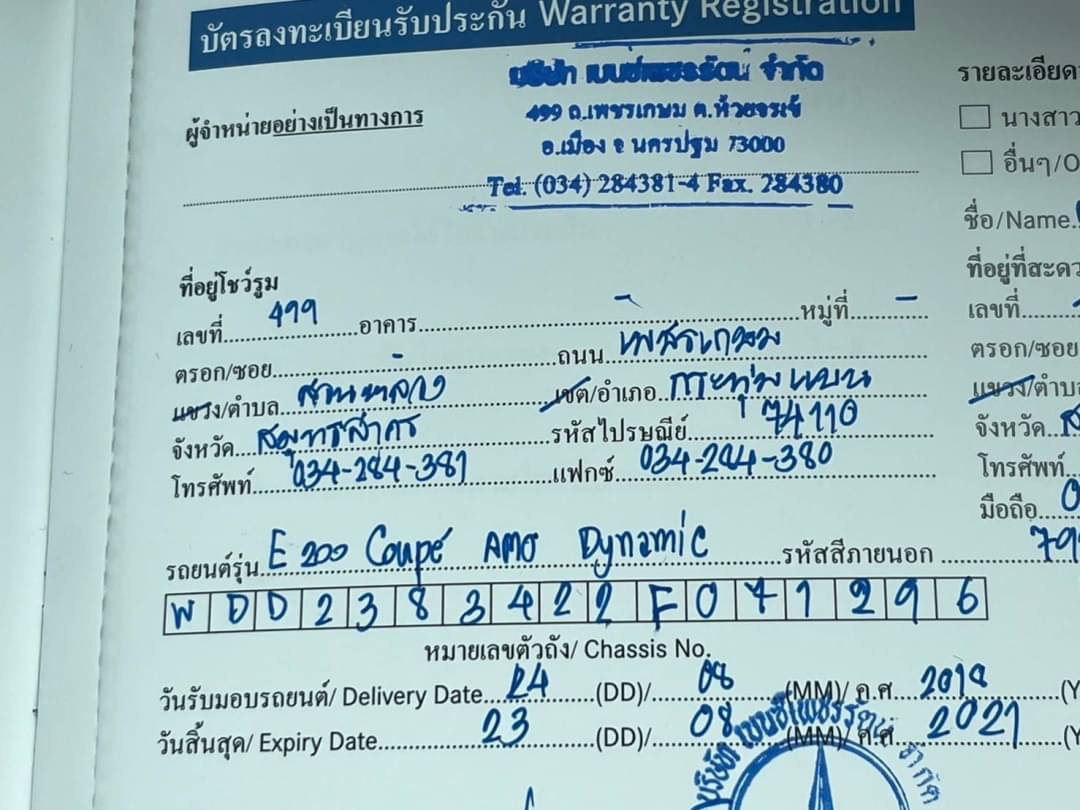 บัตรลงทะเบียนรับประกัน Warranty Registration
บริษัท เบนซ์เพชรรัตน์ จำกัด
รายละเอียด
ผู้จำหน่ายอย่างเป็นทางการ
499 ถ.เพชรเกษม ต.ห้วยจรเข้
นางสาว
อ.เมือง จ นครปฐม 73000
อื่นๆ/O
Tel. (034) 284381-4 Fax. 284380
ชื่อ/Name
ที่อยู่โชว์รูม
ที่อยู่ที่สะดว
เลขที่ 499 อาคาร - หมู่ที่ -
เลขที่
ตรอก/ซอย ถนน เพชรเกษม
ตรอก/ซอย
แขวง/ตำบล สวนหลวง เขต/อำเภอ กระทุ่มแบน
แขวง/ตำบล
จังหวัด สมุทรสาคร รหัสไปรษณีย์ 74110
จังหวัด ส
โทรศัพท์ 034-284-381 แฟกซ์ 034-284-380
โทรศัพท์
มือถือ 0
รถยนต์รุ่น E 200 Coupé AMG Dynamic รหัสสีภายนอก 79
WDD2383422F071296
หมายเลขตัวถัง/ Chassis No.
วันรับมอบรถยนต์/ Delivery Date 24 (DD)/ 08 (MM)/ ค.ศ. 2018 (Y
วันสิ้นสุด/ Expiry Date 23 (DD)/ 08 (MM)/ ค.ศ 2021 (Y
บริษัท เบนซ์เพชรรัตน์ จำกัด